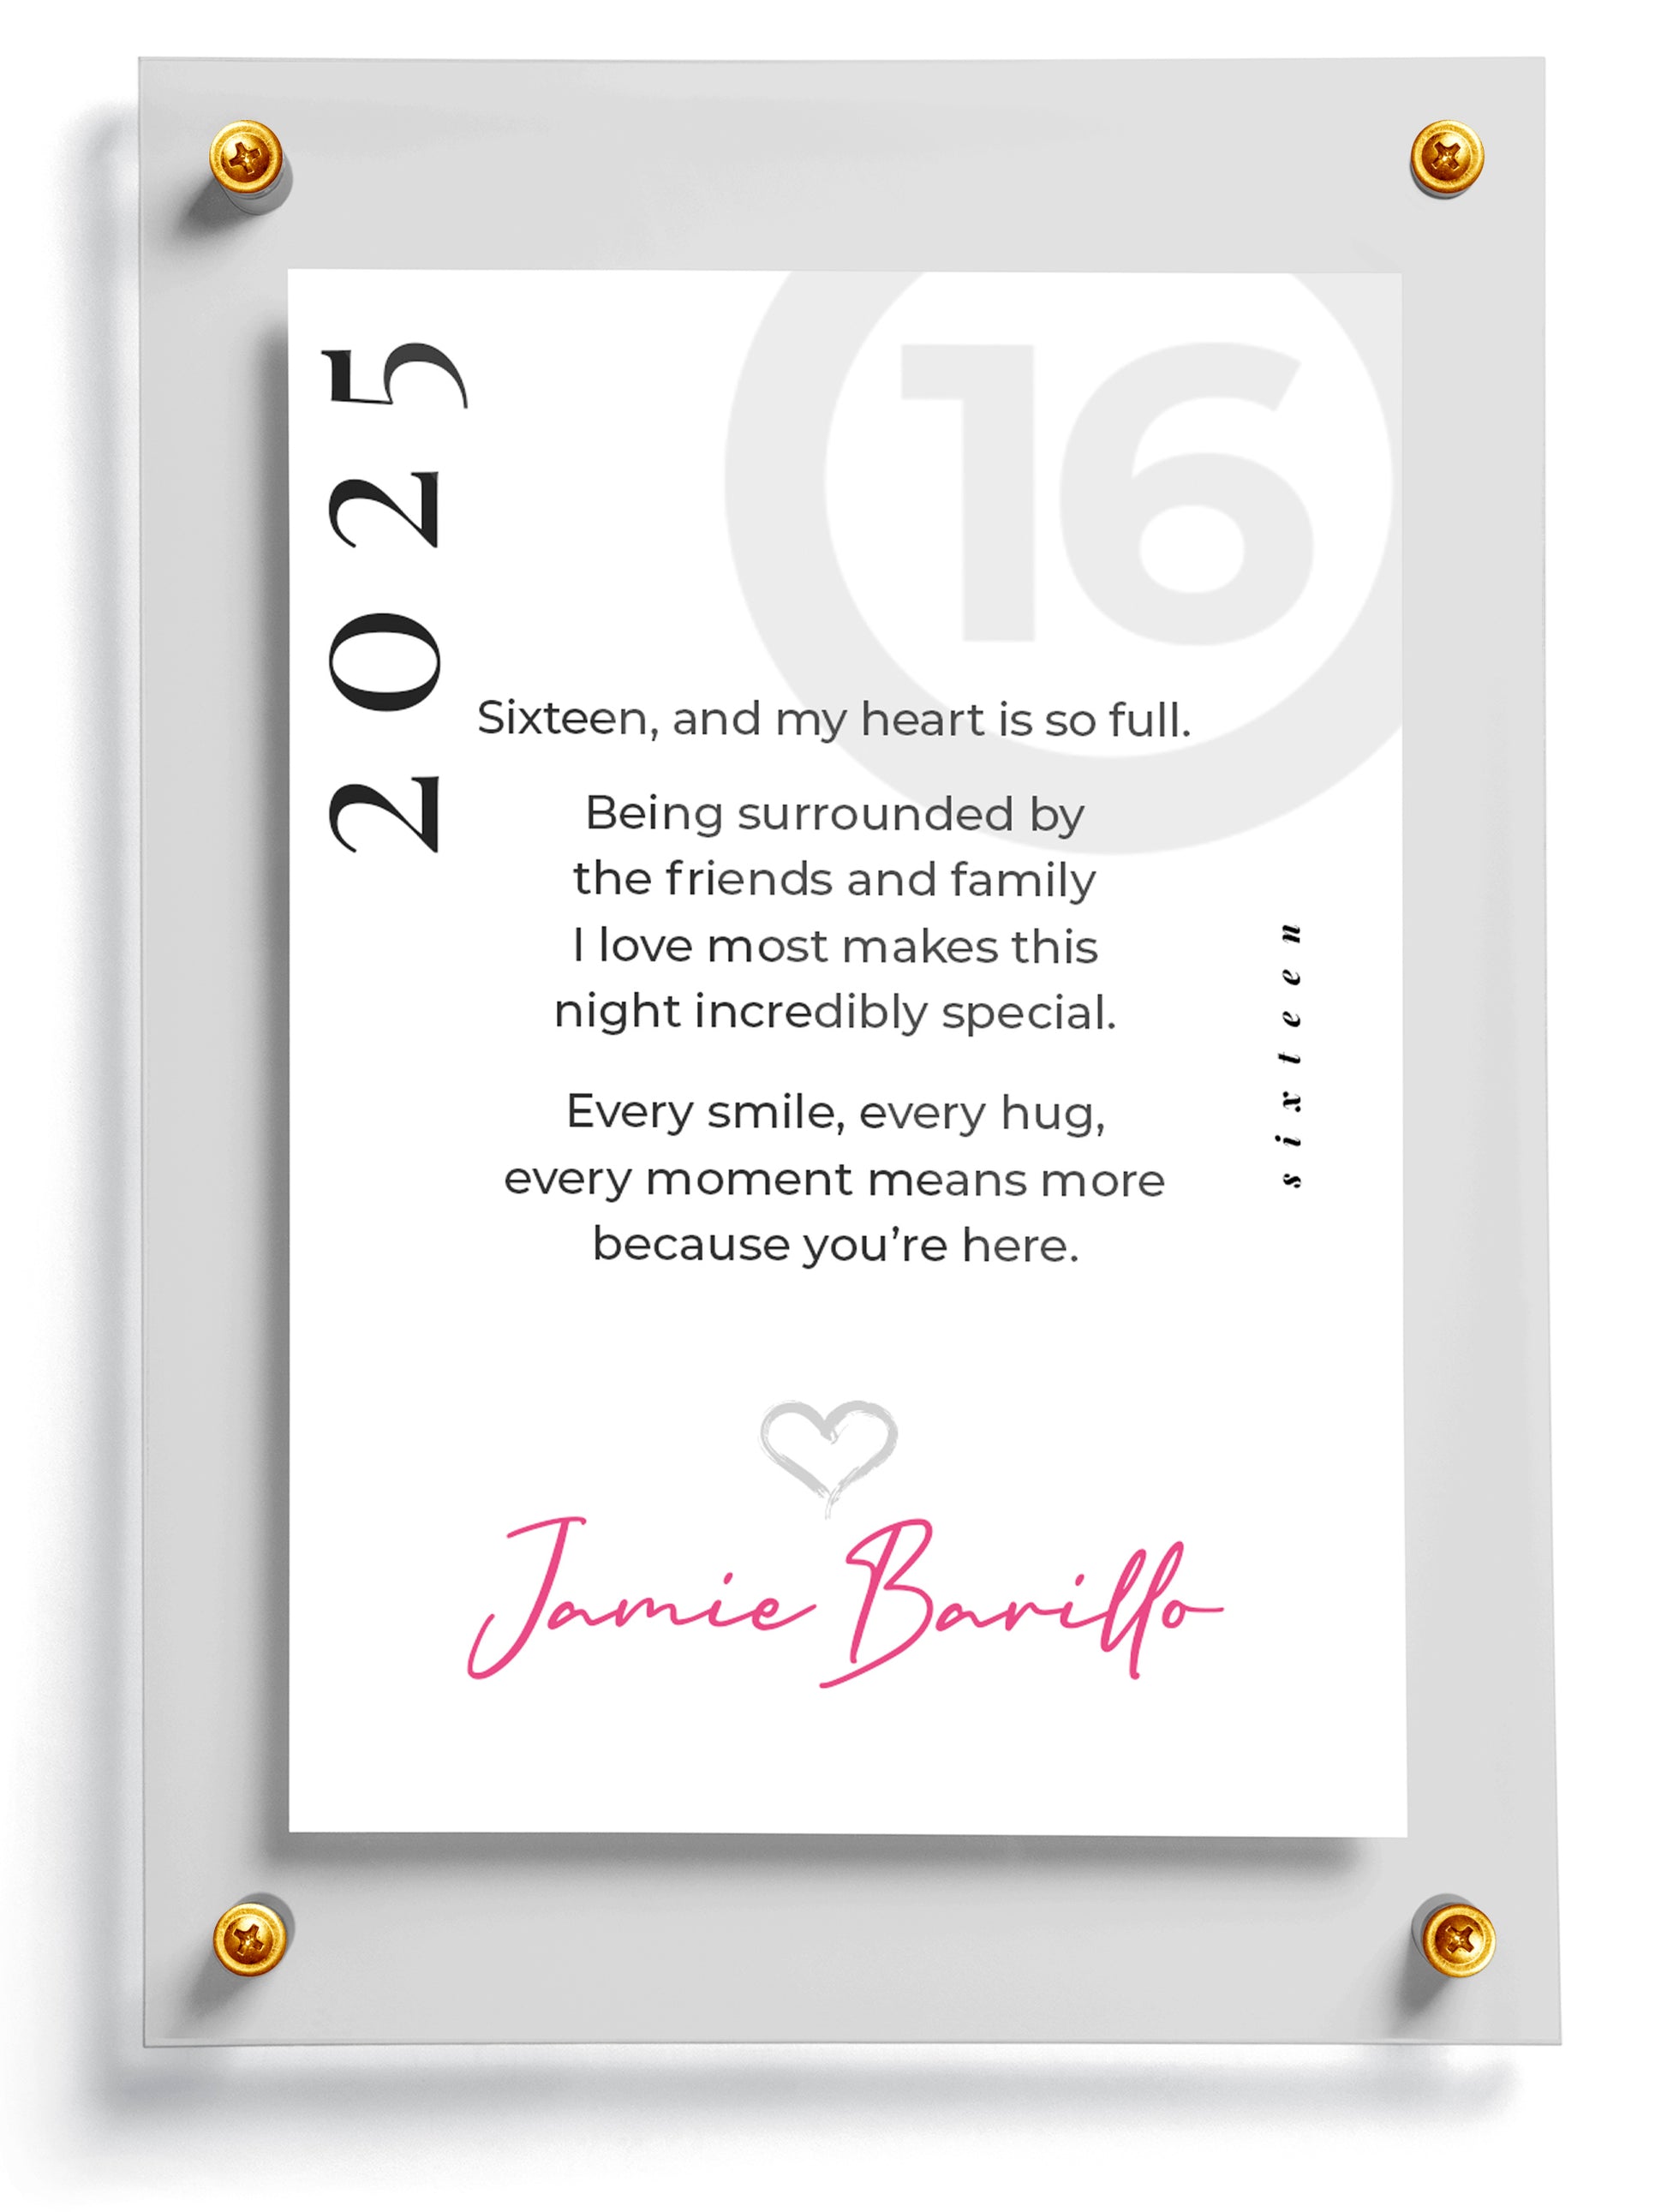 2025
16
Sixteen, and my heart is so full.
Being surrounded by
the friends and family
I love most makes this
night incredibly special.
Every smile, every hug,
every moment means more
because you’re here.
sixteen
Jamie Barillo